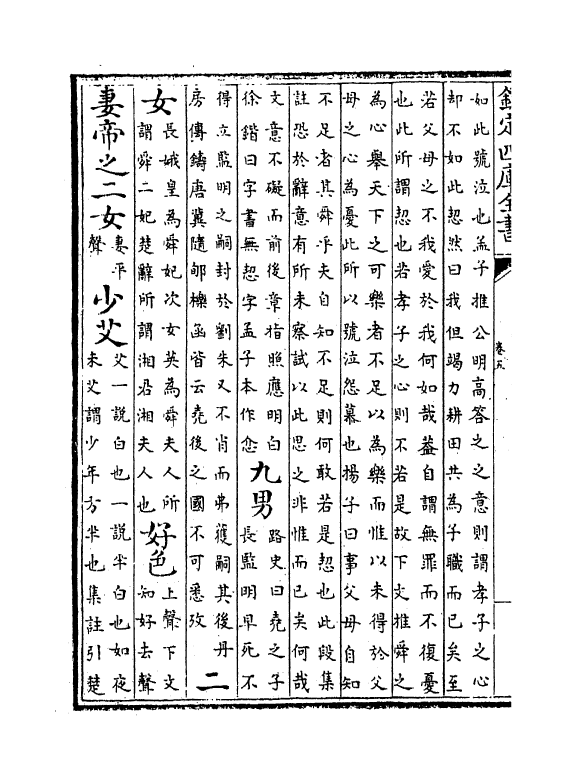 欽定四庫全書
卷五
如此號泣也孟子推公明高答之之意則謂孝子之心
却不如此恝然曰我但竭力耕田共為子職而已矣至
若父母之不我愛於我何如哉葢自謂無罪而不復憂
也此所謂恝也若孝子之心則不若是故下文推舜之
為心舉天下之可樂者不足以為樂而惟以未得於父
母之心為憂此所以號泣怨慕也揚子曰事父母自知
不足者其舜乎夫自知不足則何敢若是恝也此段集
註恐於辭意有所未察試以此思之非惟而已矣何哉
文意不礙而前後章指照應明白
徐鍇曰字書無恝字孟子本作
九男
路史曰堯之子
長監明早死不
得立監明之嗣封於劉朱又不肖而弗獲嗣其後丹
房傅鑄唐冀隨郇櫟函皆云堯後之國不可悉攷
二
女
長娥皇為舜妃次女英為舜夫人所
謂舜二妃楚辭所謂湘君湘夫人也
好色
上聲下文
知好去聲
妻帝之二女
妻平
聲
少艾
艾一說白也一說半白也如夜
未艾謂少年方半也集註引楚